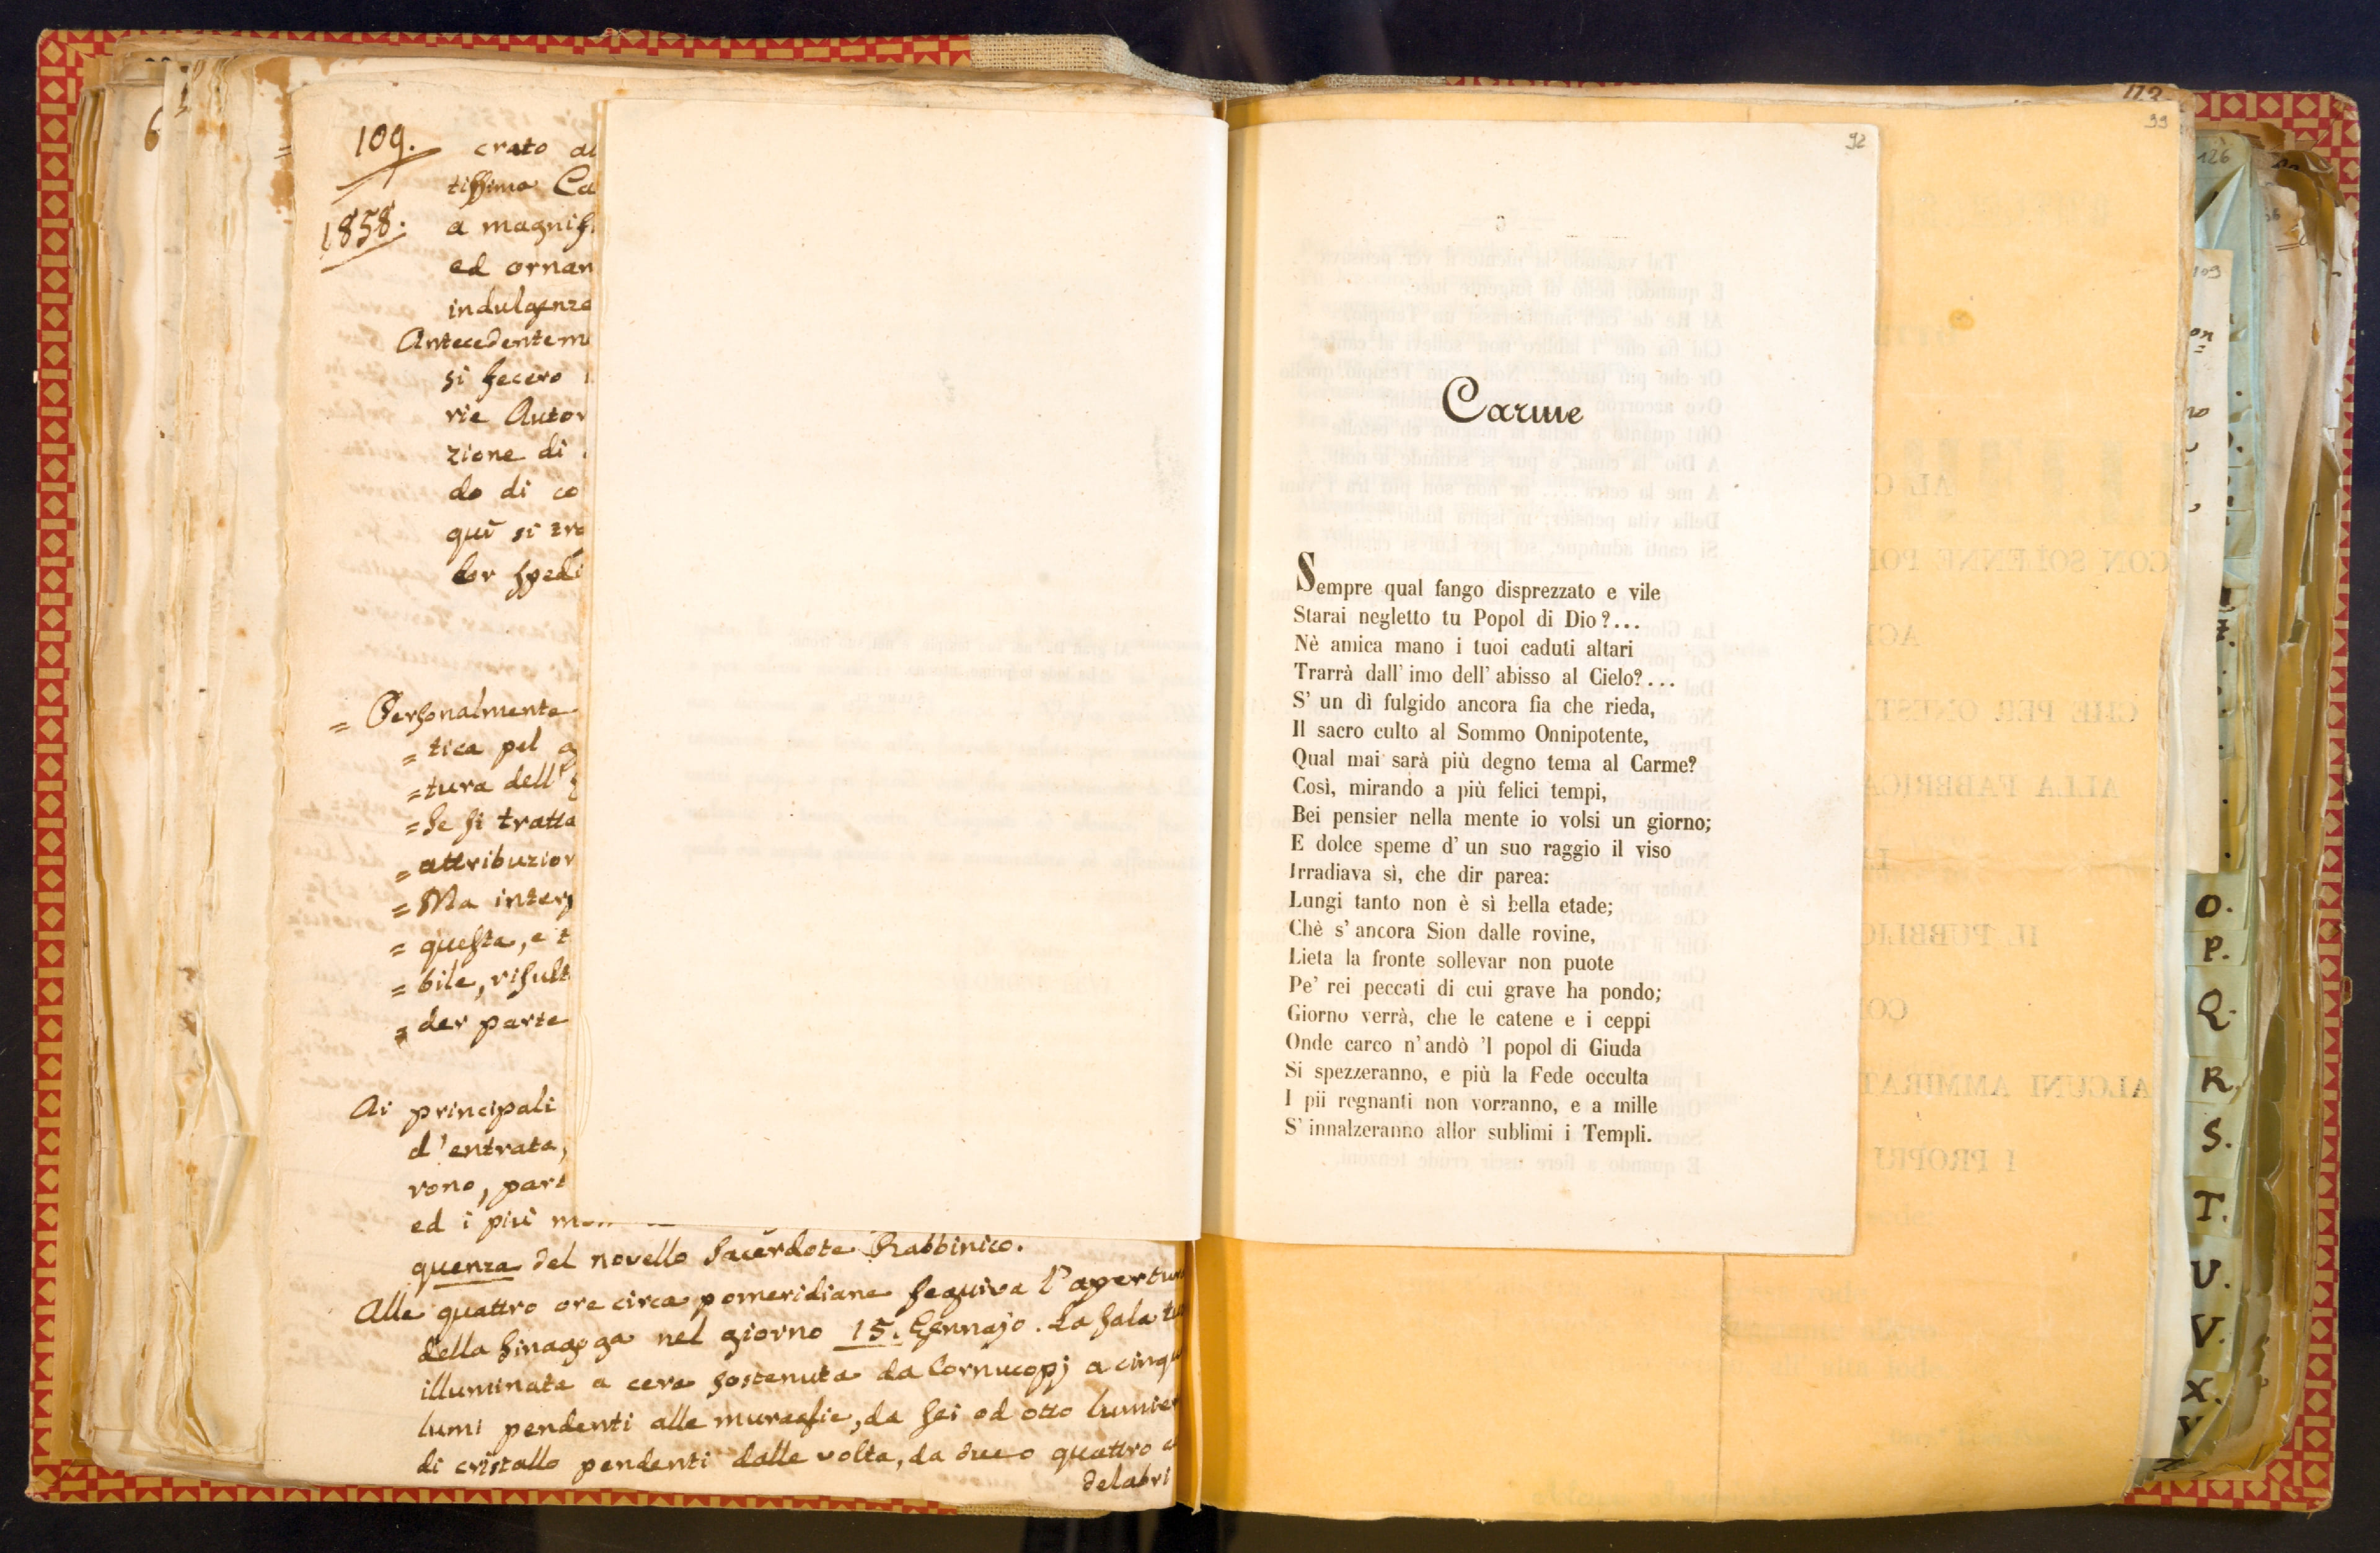 109.
1858.
crato al
tissimo Ca
a magnifi
ed ornam
indulgenza
Antecedentem
si fecero
rie Autor
zione di
do di co
quì si tro
lor spedi
= Personalmente
= tica pel
= tura dell'
= se si tratta
= attribuzion
= Ma interp
= questa, e t
= bile, risult
= der parte
Ai principali
d'entrata,
rono, part
ed i più
quenza del novello Sacerdote Rabbinico.
Alle quattro ore circa pomeridiane seguiva l'apertur
della Sinagoga nel giorno 15. Gennajo. La Sala tu
illuminata a cera sostenuta da Cornucopj a cinqu
lumi pendenti alle muraglie, da sei od otto lumier
di cristallo pendenti dalle volta, da due o quattro
delabri
92
Carme
Sempre qual fango disprezzato e vile
Starai negletto tu Popol di Dio?...
Nè amica mano i tuoi caduti altari
Trarrà dall' imo dell' abisso al Cielo?...
S' un dì fulgido ancora fia che rieda,
Il sacro culto al Sommo Onnipotente,
Qual mai sarà più degno tema al Carme?
Così, mirando a più felici tempi,
Bei pensier nella mente io volsi un giorno;
E dolce speme d' un suo raggio il viso
Irradiava sì, che dir parea:
Lungi tanto non è sì bella etade;
Chè s' ancora Sion dalle rovine,
Lieta la fronte sollevar non puote
Pe' rei peccati di cui grave ha pondo;
Giorno verrà, che le catene e i ceppi
Onde carco n' andò 'l popol di Giuda
Si spezzeranno, e più la Fede occulta
I pii regnanti non vorranno, e a mille
S' innalzeranno allor sublimi i Templi.
99
126
109
O.
P.
Q.
R.
S.
T.
U.
V.
X.